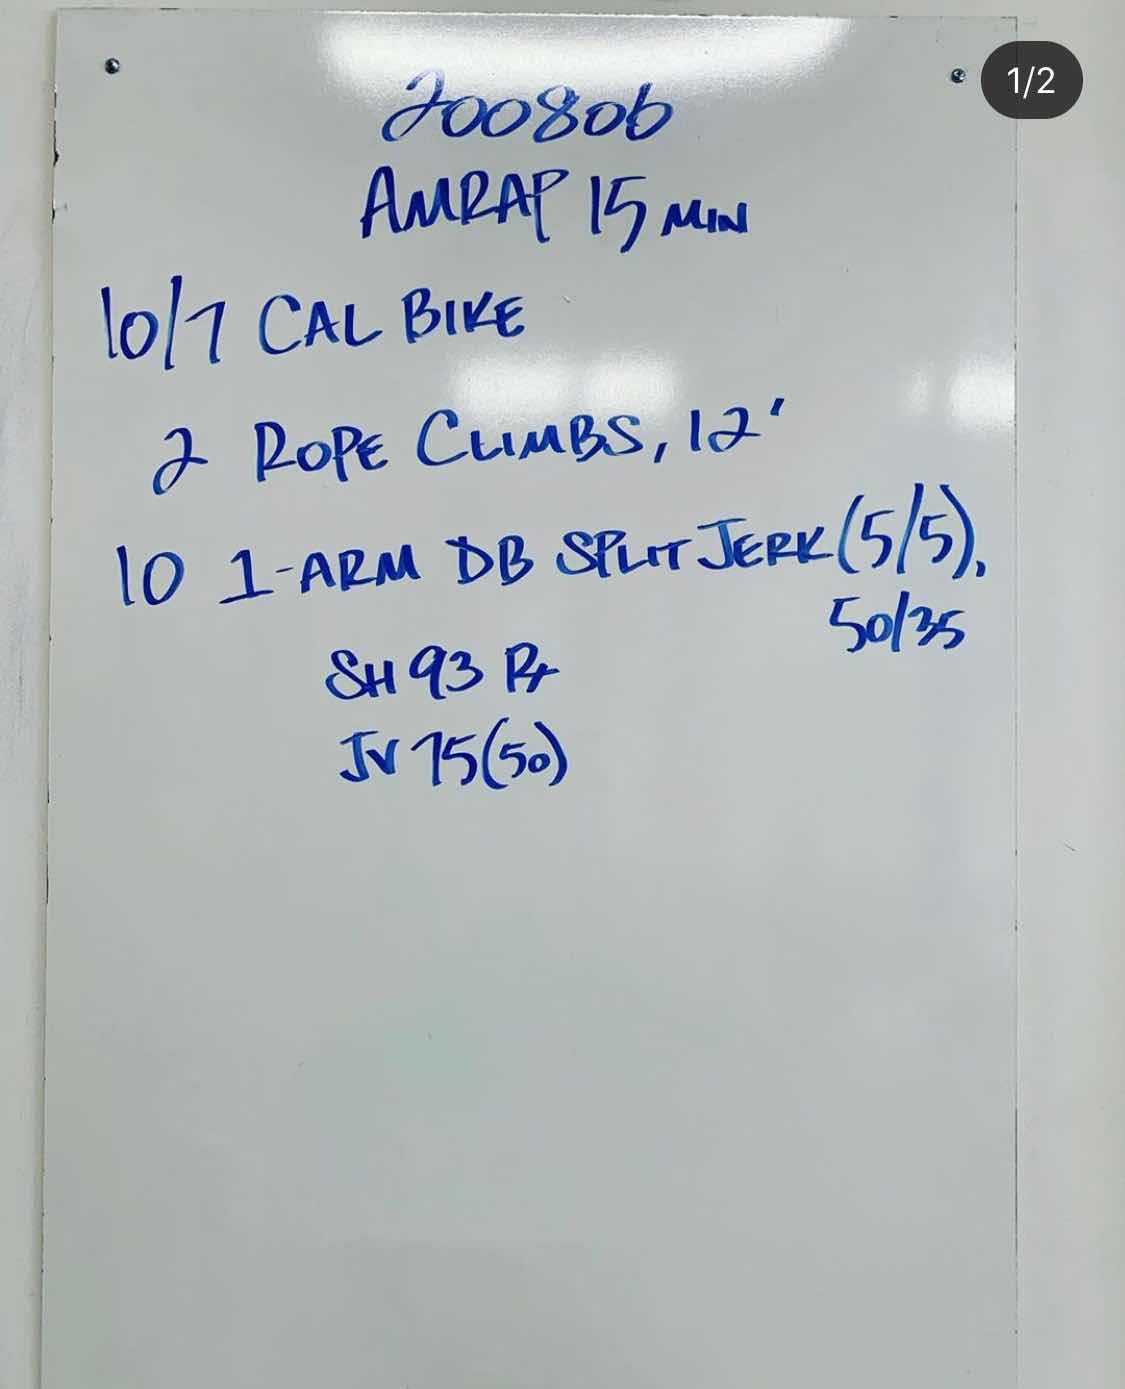 1/2
200806
AMRAP 15 MIN
10/7 CAL BIKE
2 ROPE CLIMBS, 12'
10 1-ARM DB SPLIT JERK (5/5),
50/35
SH 93 Rx
JV 75(50)